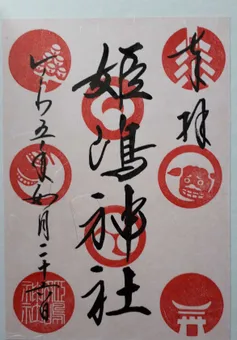 奉拝
姫嶋神社
令和五年如月二十日
姫嶋
神社